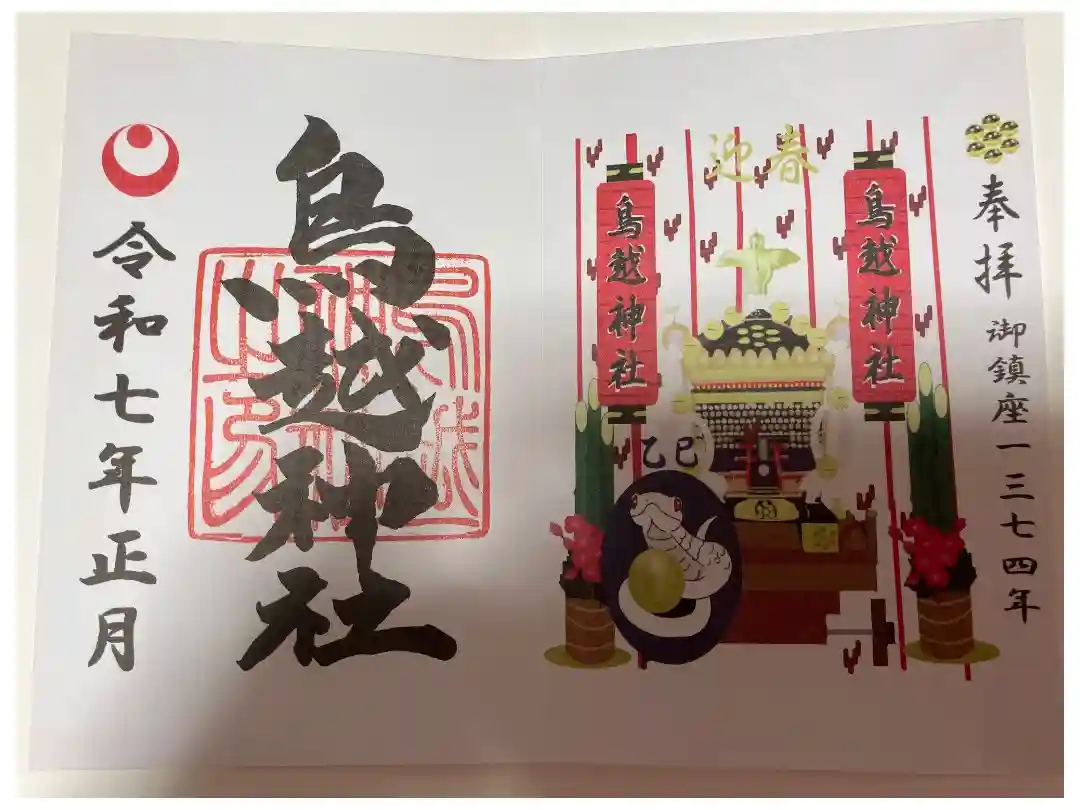 奉拝 御鎮座一三七四年
迎春
鳥越神社
鳥越神社
乙巳
鳥越神社
令和七年正月